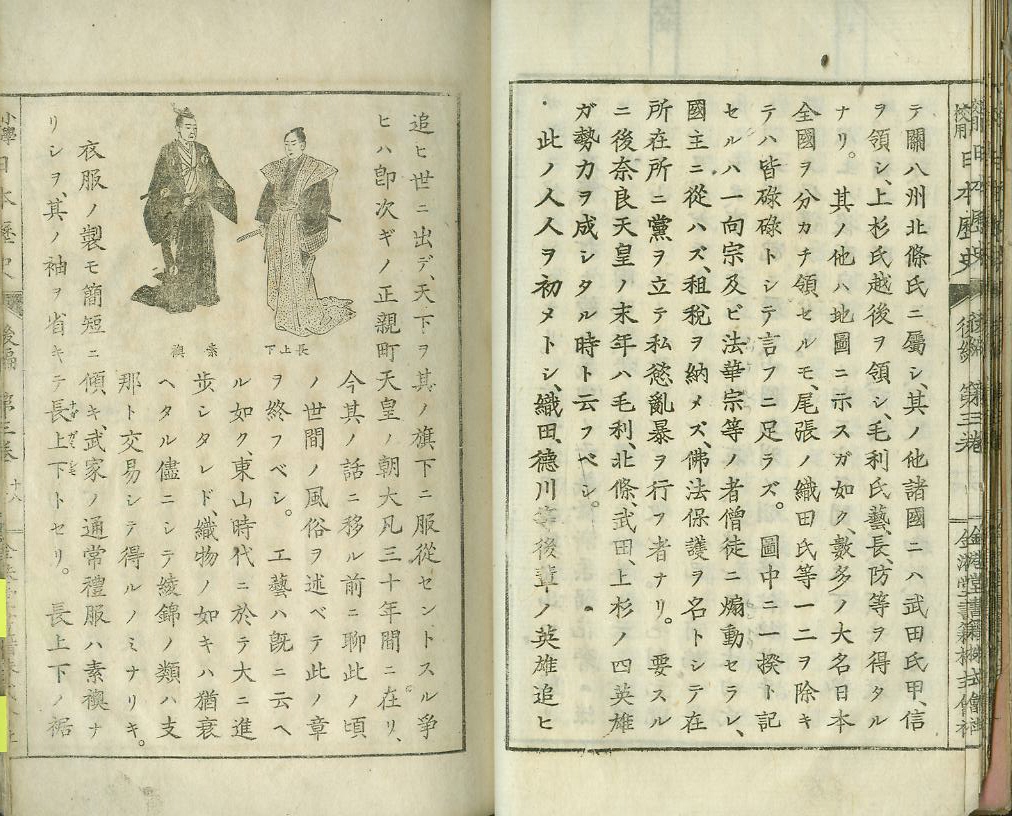 テ關八州北條氏ニ屬シ、其ノ他諸國ニハ武田氏甲、信
ヲ領シ、上杉氏越後ヲ領シ、毛利氏藝、長、防等ヲ得タル
ナリ。其ノ他ハ地圖ニ示スガ如ク、數多ノ大名日本
全國ヲ分カチ領セルモ、尾張ノ織田氏等一二ヲ除キ
テハ皆碌碌トシテ言フニ足ラズ。圖中ニ一揆ト記
セルハ一向宗及ビ法華宗等ノ者僧徒ニ煽動セラレ、
國主ニ從ハズ、租稅ヲ納メズ、佛法保護ヲ名トシテ在
所在所ニ黨ヲ立テ私慾亂暴ヲ行フ者ナリ。要スル
ニ後奈良天皇ノ末年ハ毛利、北條、武田、上杉ノ四英雄
ガ勢力ヲ成シタル時ト云フベシ。
此ノ人人ヲ初メトシ、織田、德川等後輩ノ英雄追ヒ
校用 日本歷史 後編 第三卷 金港堂書籍株式會社
追ヒ世ニ出デ、天下ヲ其ノ旗下ニ服從セントスル爭
ヒハ卽次ギノ正親町天皇ノ朝大凡三十年間ニ在リ、
今其ノ話ニ移ル前ニ聊此ノ頃
ノ世間ノ風俗ヲ述ベテ此ノ章
ヲ終フベシ。工藝ハ旣ニ云ヘ
ル如ク、東山時代ニ於テ大ニ進
步シタレド、織物ノ如キハ猶衰
ヘタル儘ニシテ綾錦ノ類ハ支
那ト交易シテ得ルノミナリキ。
長上下
素襖
衣服ノ製モ簡短ニ傾キ、武家ノ通常禮服ハ素襖ナ
リシヲ、其ノ袖ヲ省キテ長上下トセリ。長上下ノ裾
小學 日本歷史 後編 第三卷 十八